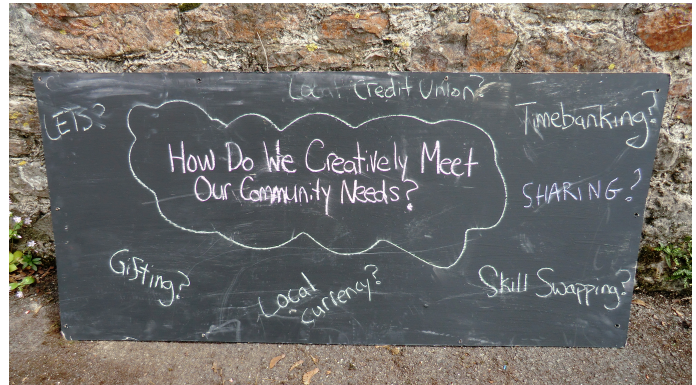 Local Credit Union?
LETS?
Timebanking?
How Do We Creatively Meet
Our Community Needs?
SHARING?
Gifting?
Local
currency?
Skill Swapping?